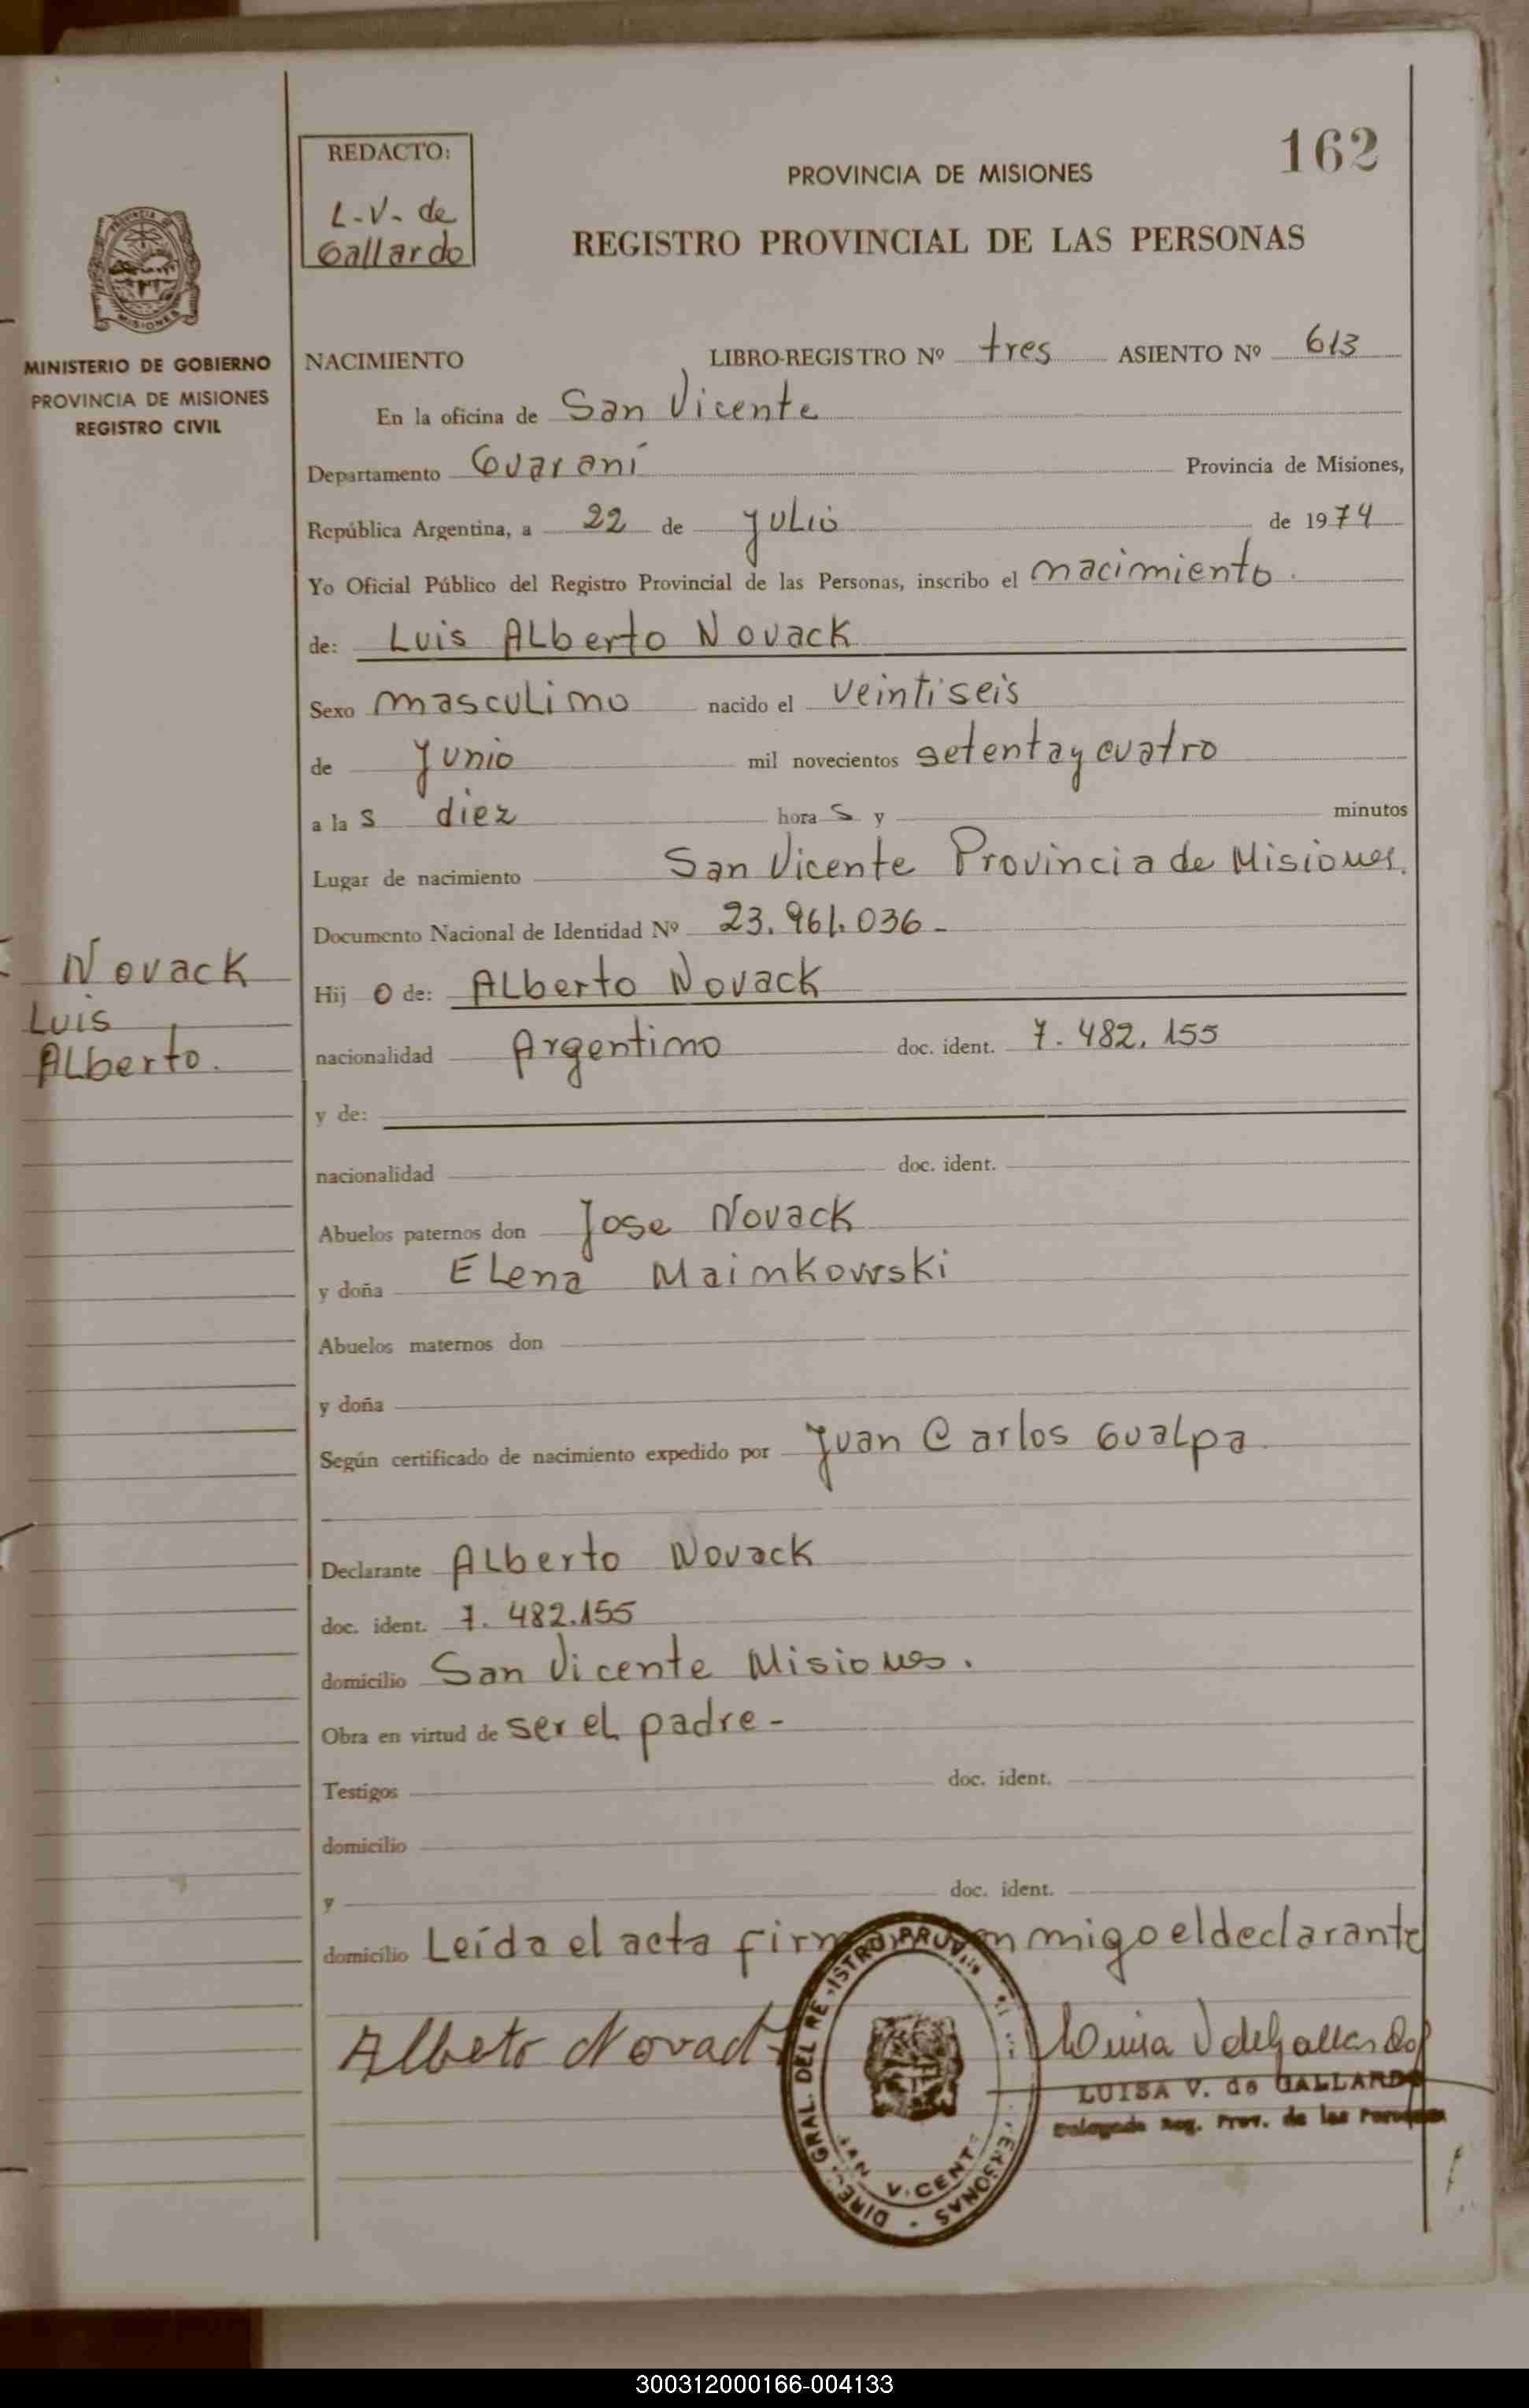 162
REDACTO:
L-V- de
Gallardo
PROVINCIA DE MISIONES
REGISTRO PROVINCIAL DE LAS PERSONAS
MISIONES
MINISTERIO DE GOBIERNO
PROVINCIA DE MISIONES
REGISTRO CIVIL
NACIMIENTO LIBRO-REGISTRO Nº tres ASIENTO Nº 613
En la oficina de San Vicente
Departamento Guaraní Provincia de Misiones,
República Argentina, a 22 de julio de 1974
Yo Oficial Público del Registro Provincial de las Personas, inscribo el nacimiento.
de: Luis Alberto Novack
Sexo masculino nacido el veintiseis
de junio mil novecientos setenta y cuatro
a la s diez hora s y minutos
Lugar de nacimiento San Vicente Provincia de Misiones.
Documento Nacional de Identidad Nº 23.961.036-
Novack
Luis
Alberto.
Hij o de: Alberto Novack
nacionalidad Argentino doc. ident. 7.482.155
y de:
nacionalidad doc. ident.
Abuelos paternos don Jose Novack
y doña Elena Mainkowski
Abuelos maternos don
y doña
Según certificado de nacimiento expedido por Juan Carlos Gualpa
Declarante Alberto Novack
doc. ident. 7.482.155
domicilio San Vicente Misiones.
Obra en virtud de ser el padre-
Testigos doc. ident.
domicilio
y doc. ident.
domicilio Leída el acta el declarante
Alberto Novack
Luisa V de Gallardo
LUISA V. de GALLARDO
Delegada Reg. Prov. de las Personas
DIREC. GRAL. DEL REGISTRO PROV. PERSONAS
SAN VICENTE
300312000166-004133